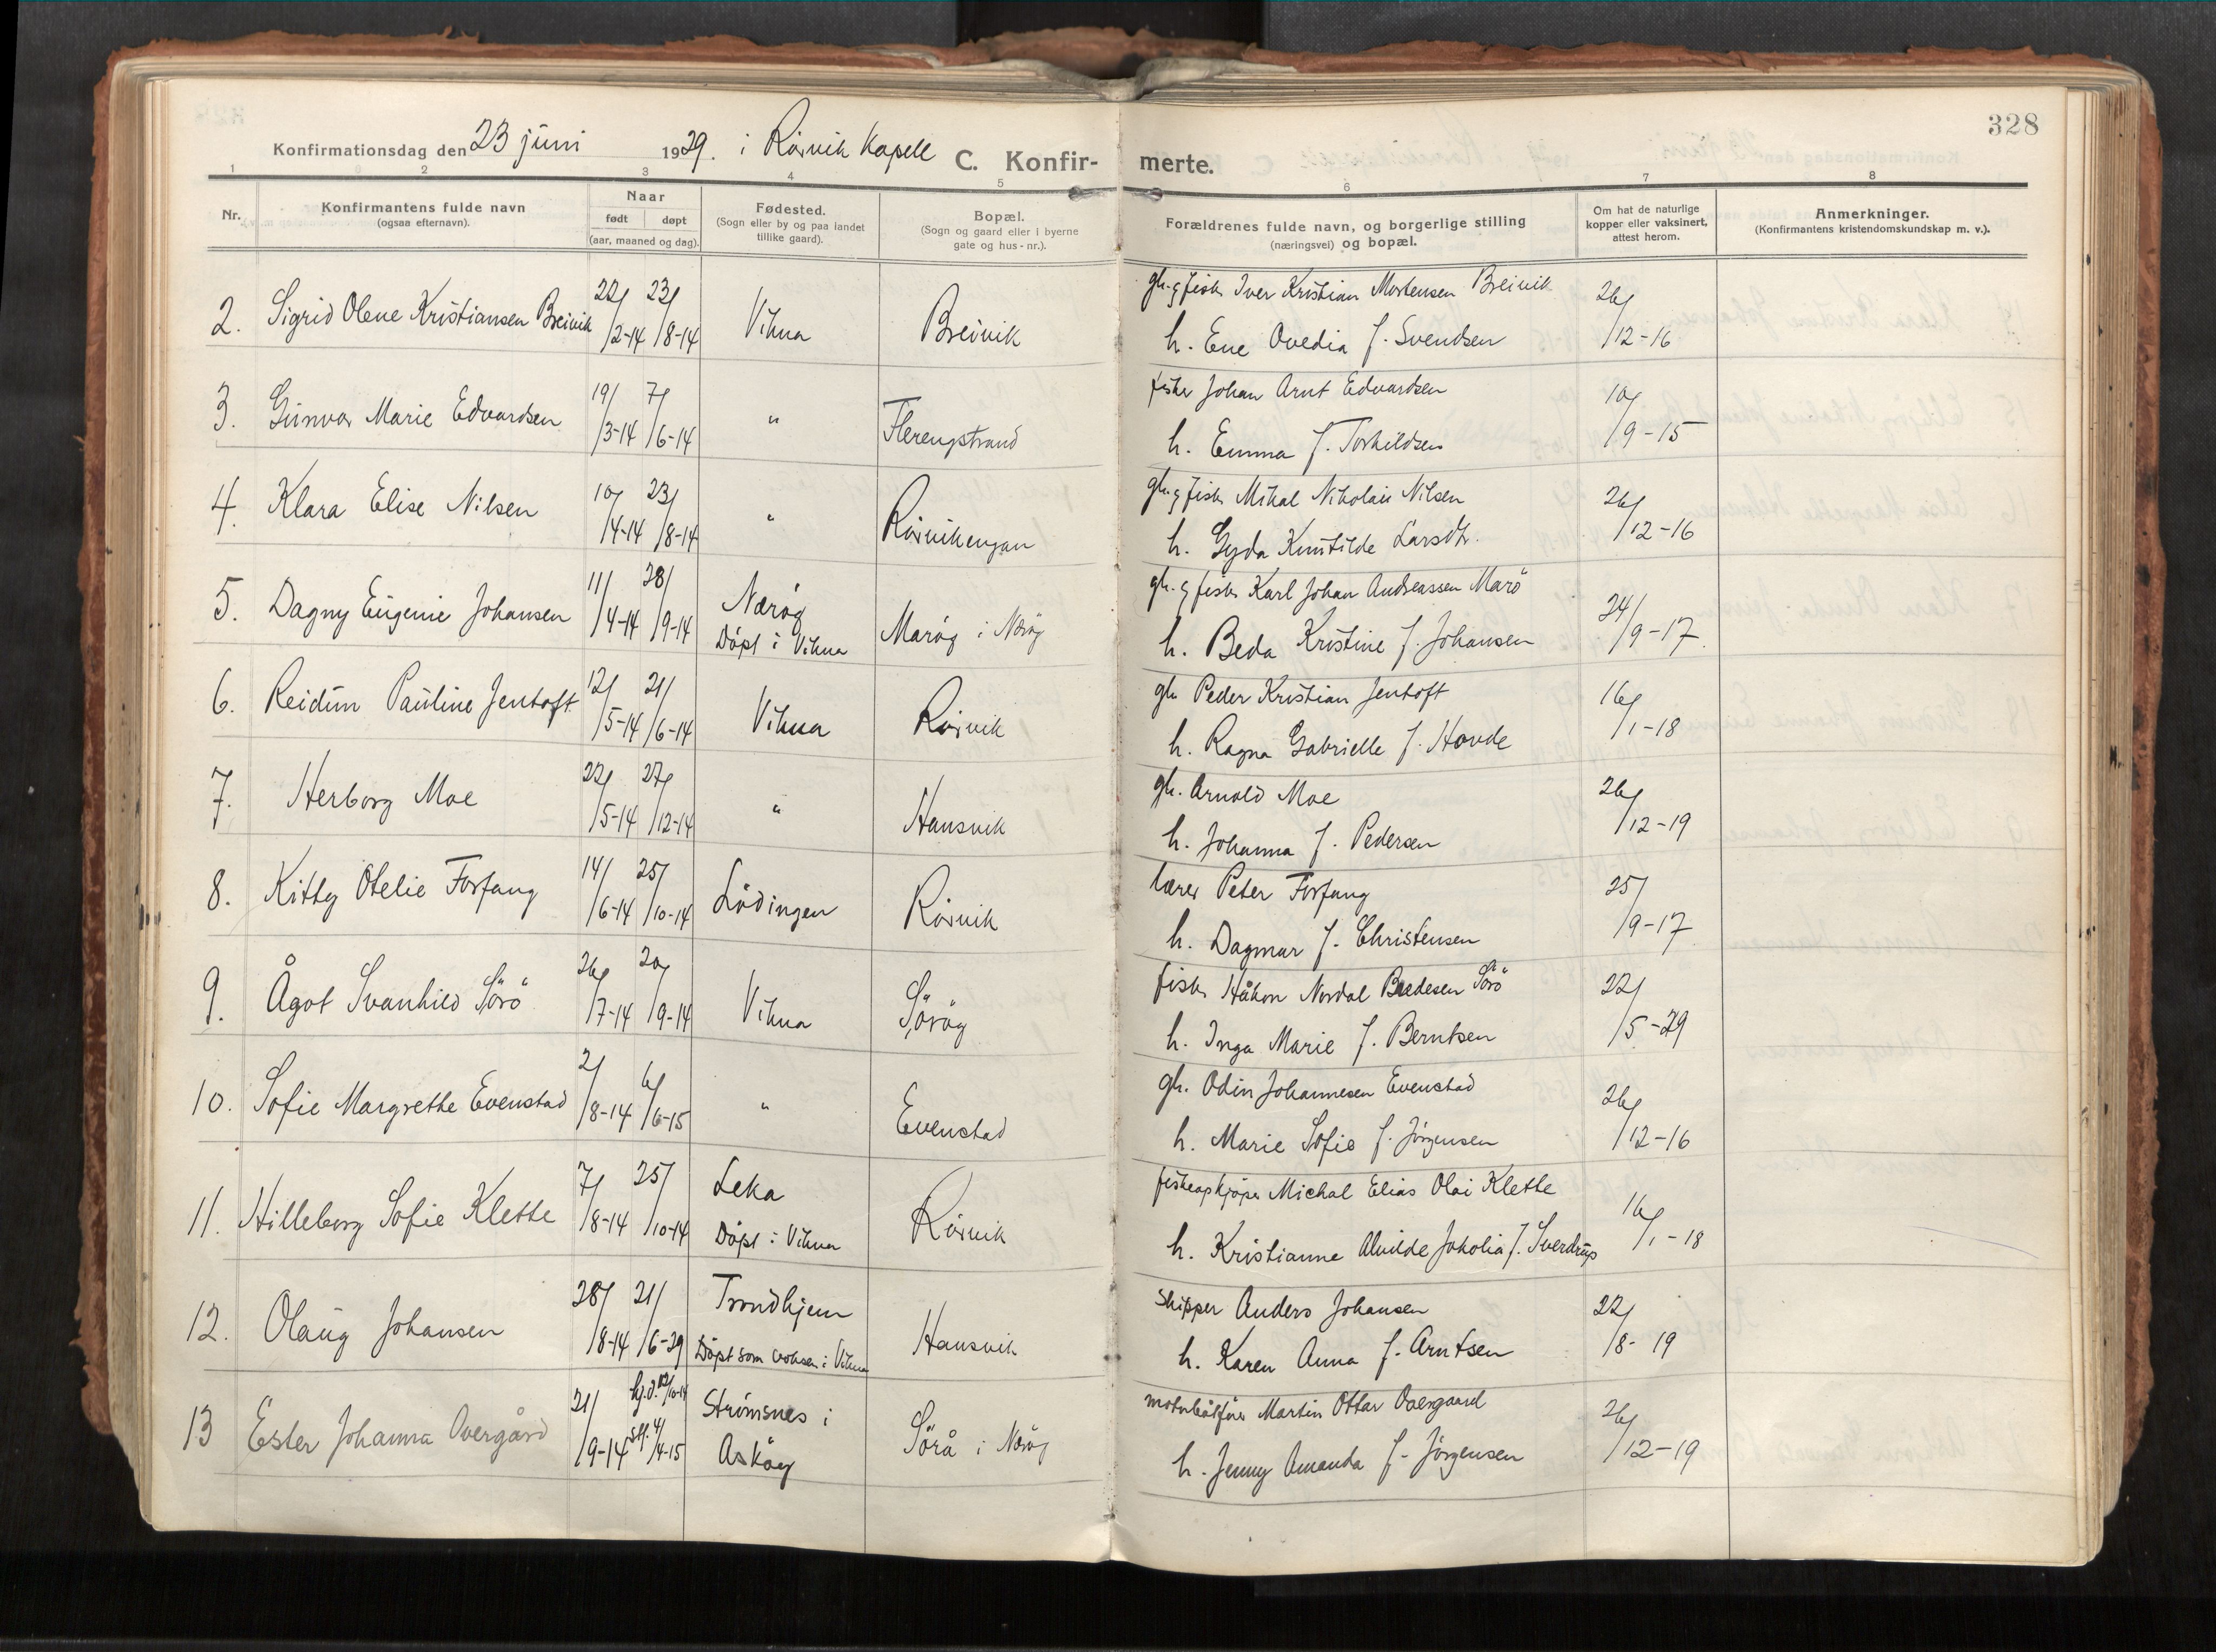 328
Konfirmationsdag den 23 juni 1929. i Rörvik Kapell C. Konfir- merte.
1 2 3 4 5 6 7 8
Nr.
Konfirmantens fulde navn
(ogsaa efternavn).
Naar
født døpt
(aar, maaned og dag).
Fødested.
(Sogn eller by og paa landet
tillike gaard).
Bopæl.
(Sogn og gaard eller i byerne
gate og hus-nr.).
Forældrenes fulde navn, og borgerlige stilling
(næringsvei) og bopæl.
Om hat de naturlige
kopper eller vaksinert,
attest herom.
Anmerkninger.
(Konfirmantens kristendomskundskap m. v.).
2. Sigrid Olene Kristiansen Breivik 22/2-14 23/8-14 Vikna Breivik gbr. g fisk. Iver Kristian Mortensen Breivik 26/12-16
h. Ene Ovedia f. Svendsen
3. Gunvor Marie Edvardsen 19/3-14 7/6-14 " Flerengstrand fisker Johan Arnt Edvardsen 10/9-15
h. Emma f. Torkildsen
4. Klara Elise Nilsen 10/4-14 23/8-14 " Rörvikengan gbr. g fisk. Mikal Nikolai Nilsen 26/12-16
h. Gyda Knutilde Larsdtr.
5. Dagny Eugenie Johansen 11/4-14 28/9-14 Neröy Maröy i Neröy gbr. g fisk. Karl Johan Andreassen Marö 24/9-17.
Döpt i Vikna h. Beda Kristine f. Johansen
6. Reidun Pauline Jentoft 12/5-14 21/6-14 Vikna Rörvik gbr Peder Kristian Jentoft 16/1-18
h. Ragna Gabrielle f. Hovde
7. Herborg Moe 22/5-14 27/12-14 " Hansvik gbr. Arnold Moe 26/12-19
h. Johanna f. Pedersen
8. Kitty Otelie Forfang 14/6-14 25/10-14 Lödingen Rörvik lærer Peter Forfang 25/9-17
h. Dagmar f. Christensen
9. Ågot Svanhild Sörö 26/7-14 20/9-14 Vikna Söröy fisk. Håkon Nordal Bredesen Sörö 22/5-29
h. Inga Marie f. Berntsen
10. Sofie Margrethe Evenstad 2/8-14 6/6-15 " Evenstad gbr. Odin Johannesen Evenstad 26/12-16
h. Marie Sofie f. Jörgensen
11. Hilleborg Sofie Klette 7/8-14 25/10-14 Leka Rörvik fiskeopkjöper Michal Elias Olai Klette 16/1-18
Döpt i Vikna h. Kristianne Alvilde Jakolia f. Sverdrup
12. Olaug Johansen 28/8-14 21/6-29 Trondhjem Hansvik Skipper Anders Johansen 22/8-19
Döpt som voksen i Vikna h. Karen Anna f. Arntsen
13 Ester Johanna Overgård 21/9-14 hj.d. 12/10-14 Strömsnes i Sörå i Neröy motorbåtförer Martin Ottar Overgaard 26/12-19
stf. 4/4-15 Asköy h. Jenny Amanda f. Jörgensen